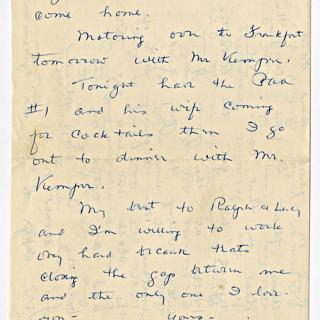 come home.
Motoring over to Frankfort
tomorrow with Mr Kemper.
Tonight have the Paa
#1 and his wife coming
for cocktails then I go
out to dinner with Mr.
Kemper.
My best to Ralph & Lucy
and I'm willing to work
very hard because thats
closing the gap between me
and the only one I love.
Yours -